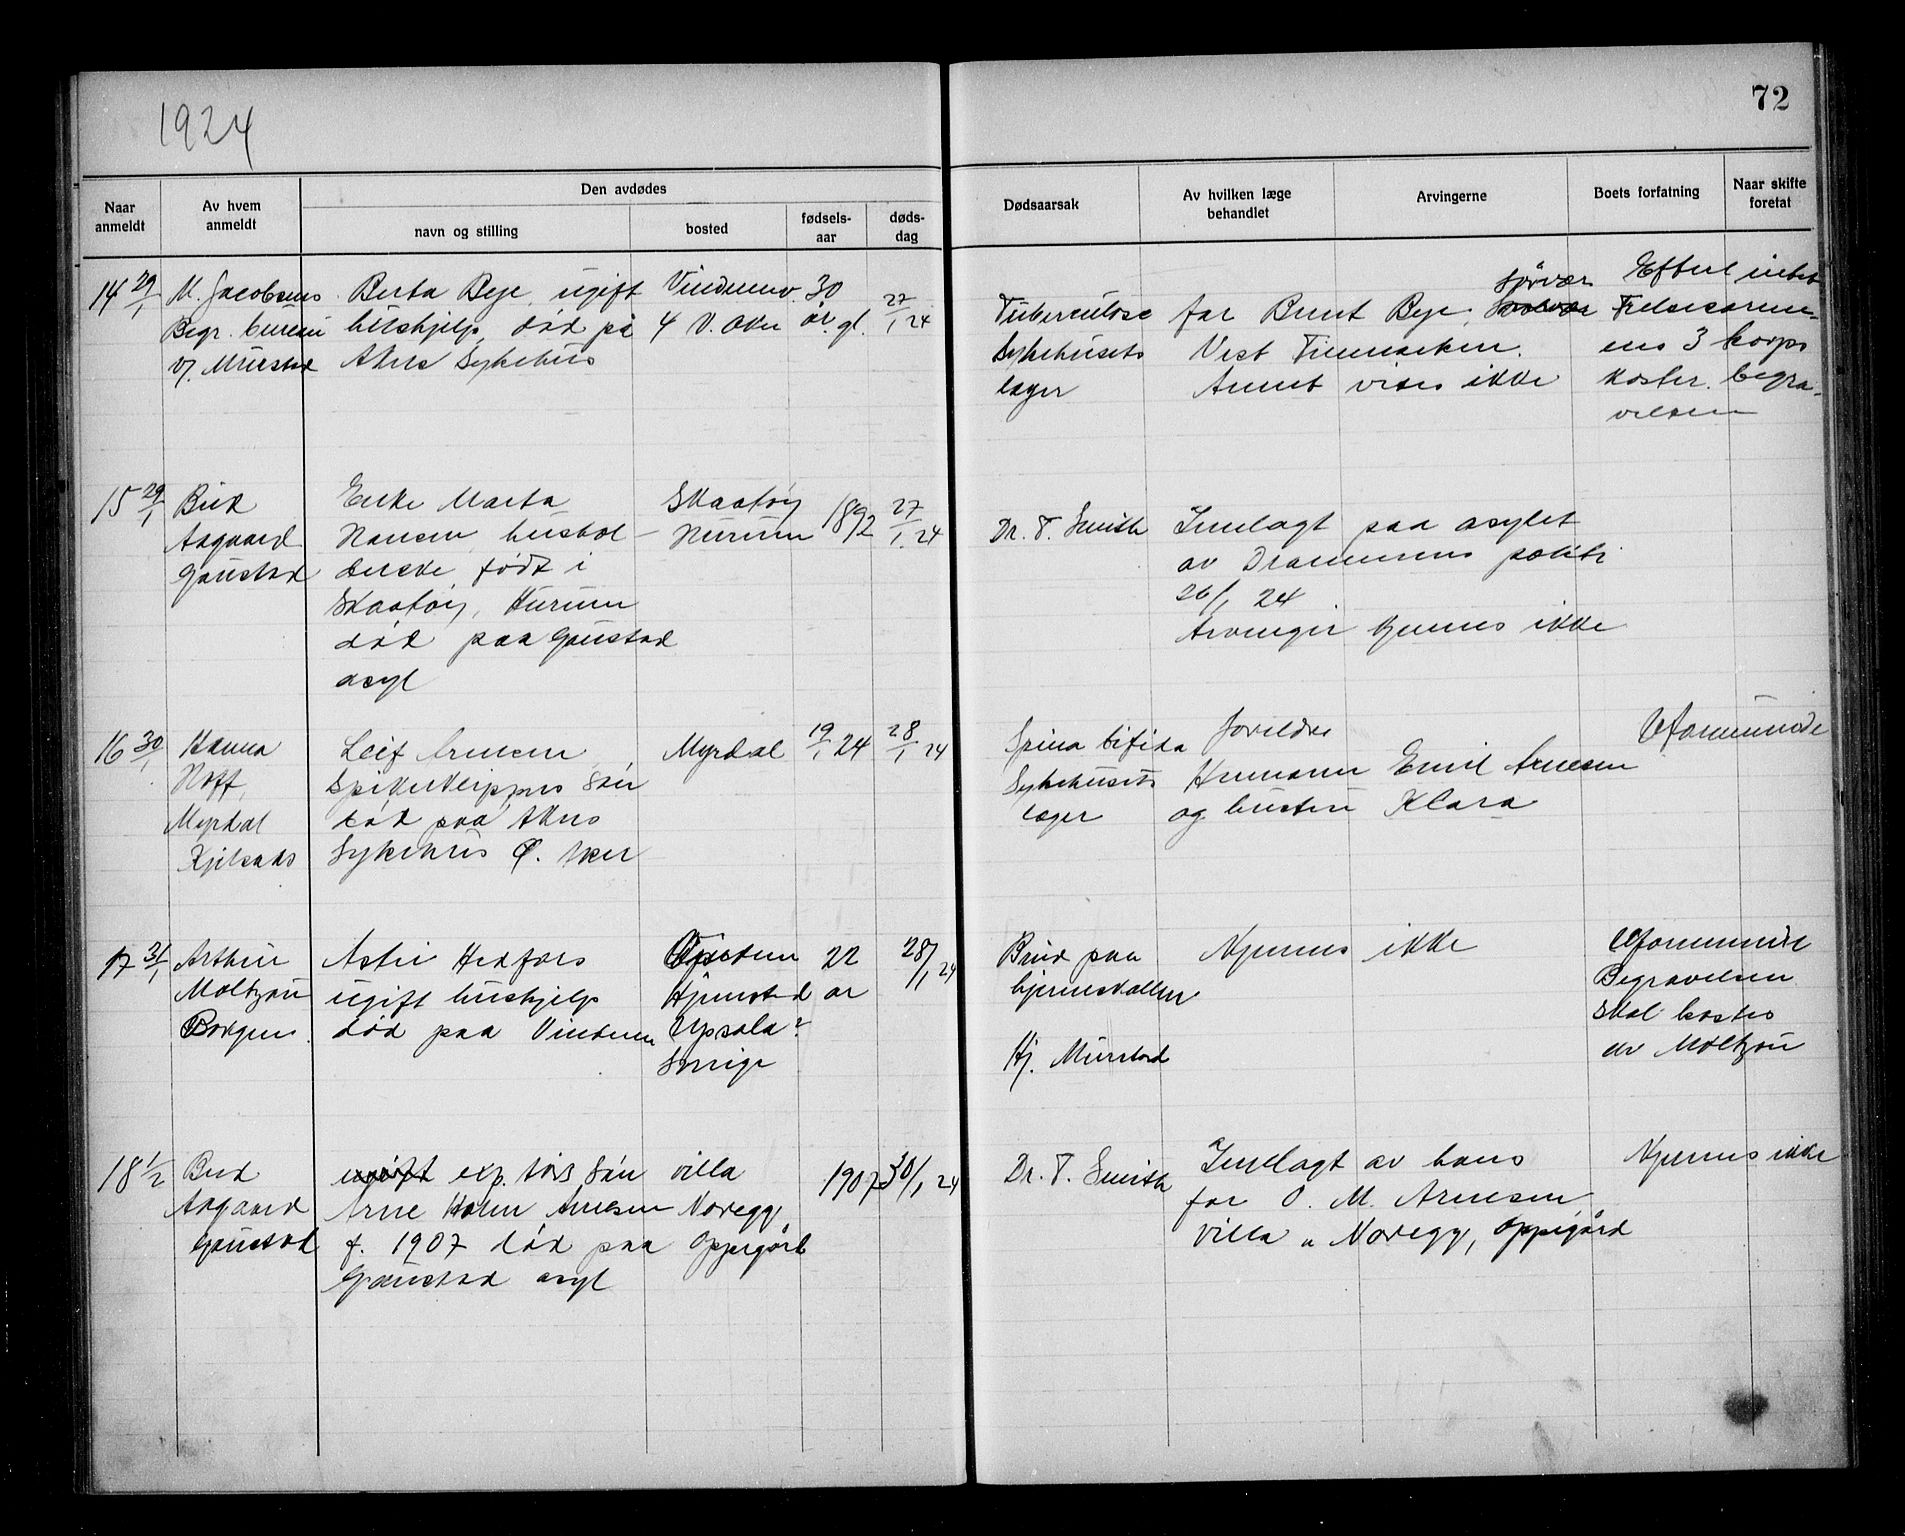 1924
72
Naar anmeldt
Av hvem anmeldt
Den avdødes
navn og stilling
bosted
fødsels-aar
døds-dag
Dødsaarsak
Av hvilken læge behandlet
Arvingerne
Boets forfatning
Naar skifte foretat
14 29/1
M. Jacobsens
Begr. bureau
v/. Murstad
Berta Bye, ugift
hushjelp, død på
Akers Sykehus
Vinderenv.
4 V. Aker
30
år gl.
27/1 24
Tuberculose
Sykehusets
læger
Sørvær
far Bernt Bye,
Vest Finmarken.
Annet vides ikke
Efterl intet
Frelsesarme-
ens 3 korps
koster begra-
velsen
15 29/1
Bud
Aagaard
Gaustad
Enke Marta
Hansen, hushol-
derske, født i
Skaatøy, Hurum
død paa Gaustad
asyl
Skaatøy
Hurum
1892
27/1 24
Dr. T. Smith
Innlagt paa asylet
av Drammens politi
26/1 24
Arvinger kjennes ikke
16 30/1
Hanna
Hoff,
Myrdal
Kjelsaas
Leif Arnesen
Spikerklippers søn
død paa Akers
Sykehus Ø. Aker
Myrdal
19/1 24
28/1 24
Spina bifida
Sykehusets
læger
Foreldre
Hermann Emil Arnesen
og hustru Klara
Uformuende
17 31/1
Arthur
Moltzau
Borgen
Astri Hedfors
ugift hushjelp
død paa Vinderen
Hjumsted
Upsala?
Sverige
22
år
28/1 24
Brud paa
hjerneskallen
Hj. Murstad
Kjennes ikke
Uformuende
Begravelsen
skal kostes
av Moltzau
18 1/2
Bud
Aagaard
Gaustad
ugift exp. søn
Arne Holm Arnesen
f. 1907 død paa
Gaustad asyl
villa
Noregg,
Oppegård
1907
30/1 24
Dr. T. Smith
Innlagt av hans
far O. M. Arnesen
villa „ Noregg, Oppegård
Kjennes ikke